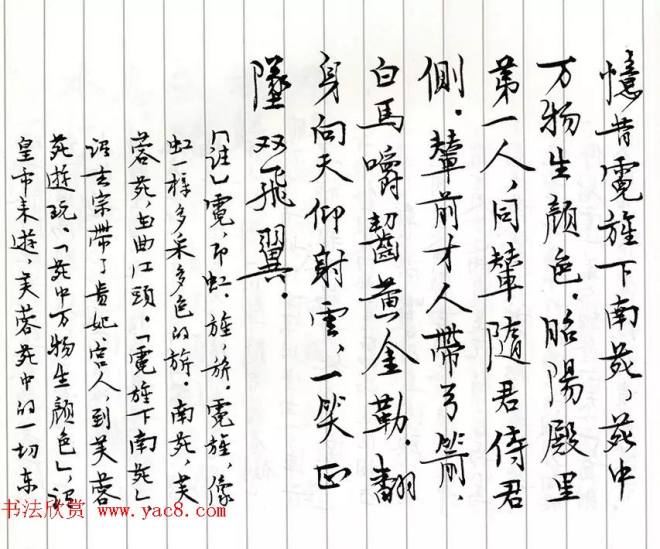 憶昔霓旌下南苑，苑中
万物生颜色．昭陽殿里
第一人，同輦隨君侍君
側．輦前才人帶弓箭．
白馬嚼齧黄金勒．翻
身向天仰射雲，一笑正
墜双飛翼．
「註」霓，即虹．旌，旂．霓旌，像
虹一样多采多色的旂．南苑，芙
蓉苑，曲曲江頭．「霓旌下南苑」，
謂玄宗帶了貴妃、宫人，到芙蓉
苑遊玩．「苑中万物生颜色」，謂
皇帝来遊，芙蓉苑中的一切东
书法欣赏 www.yac8.com